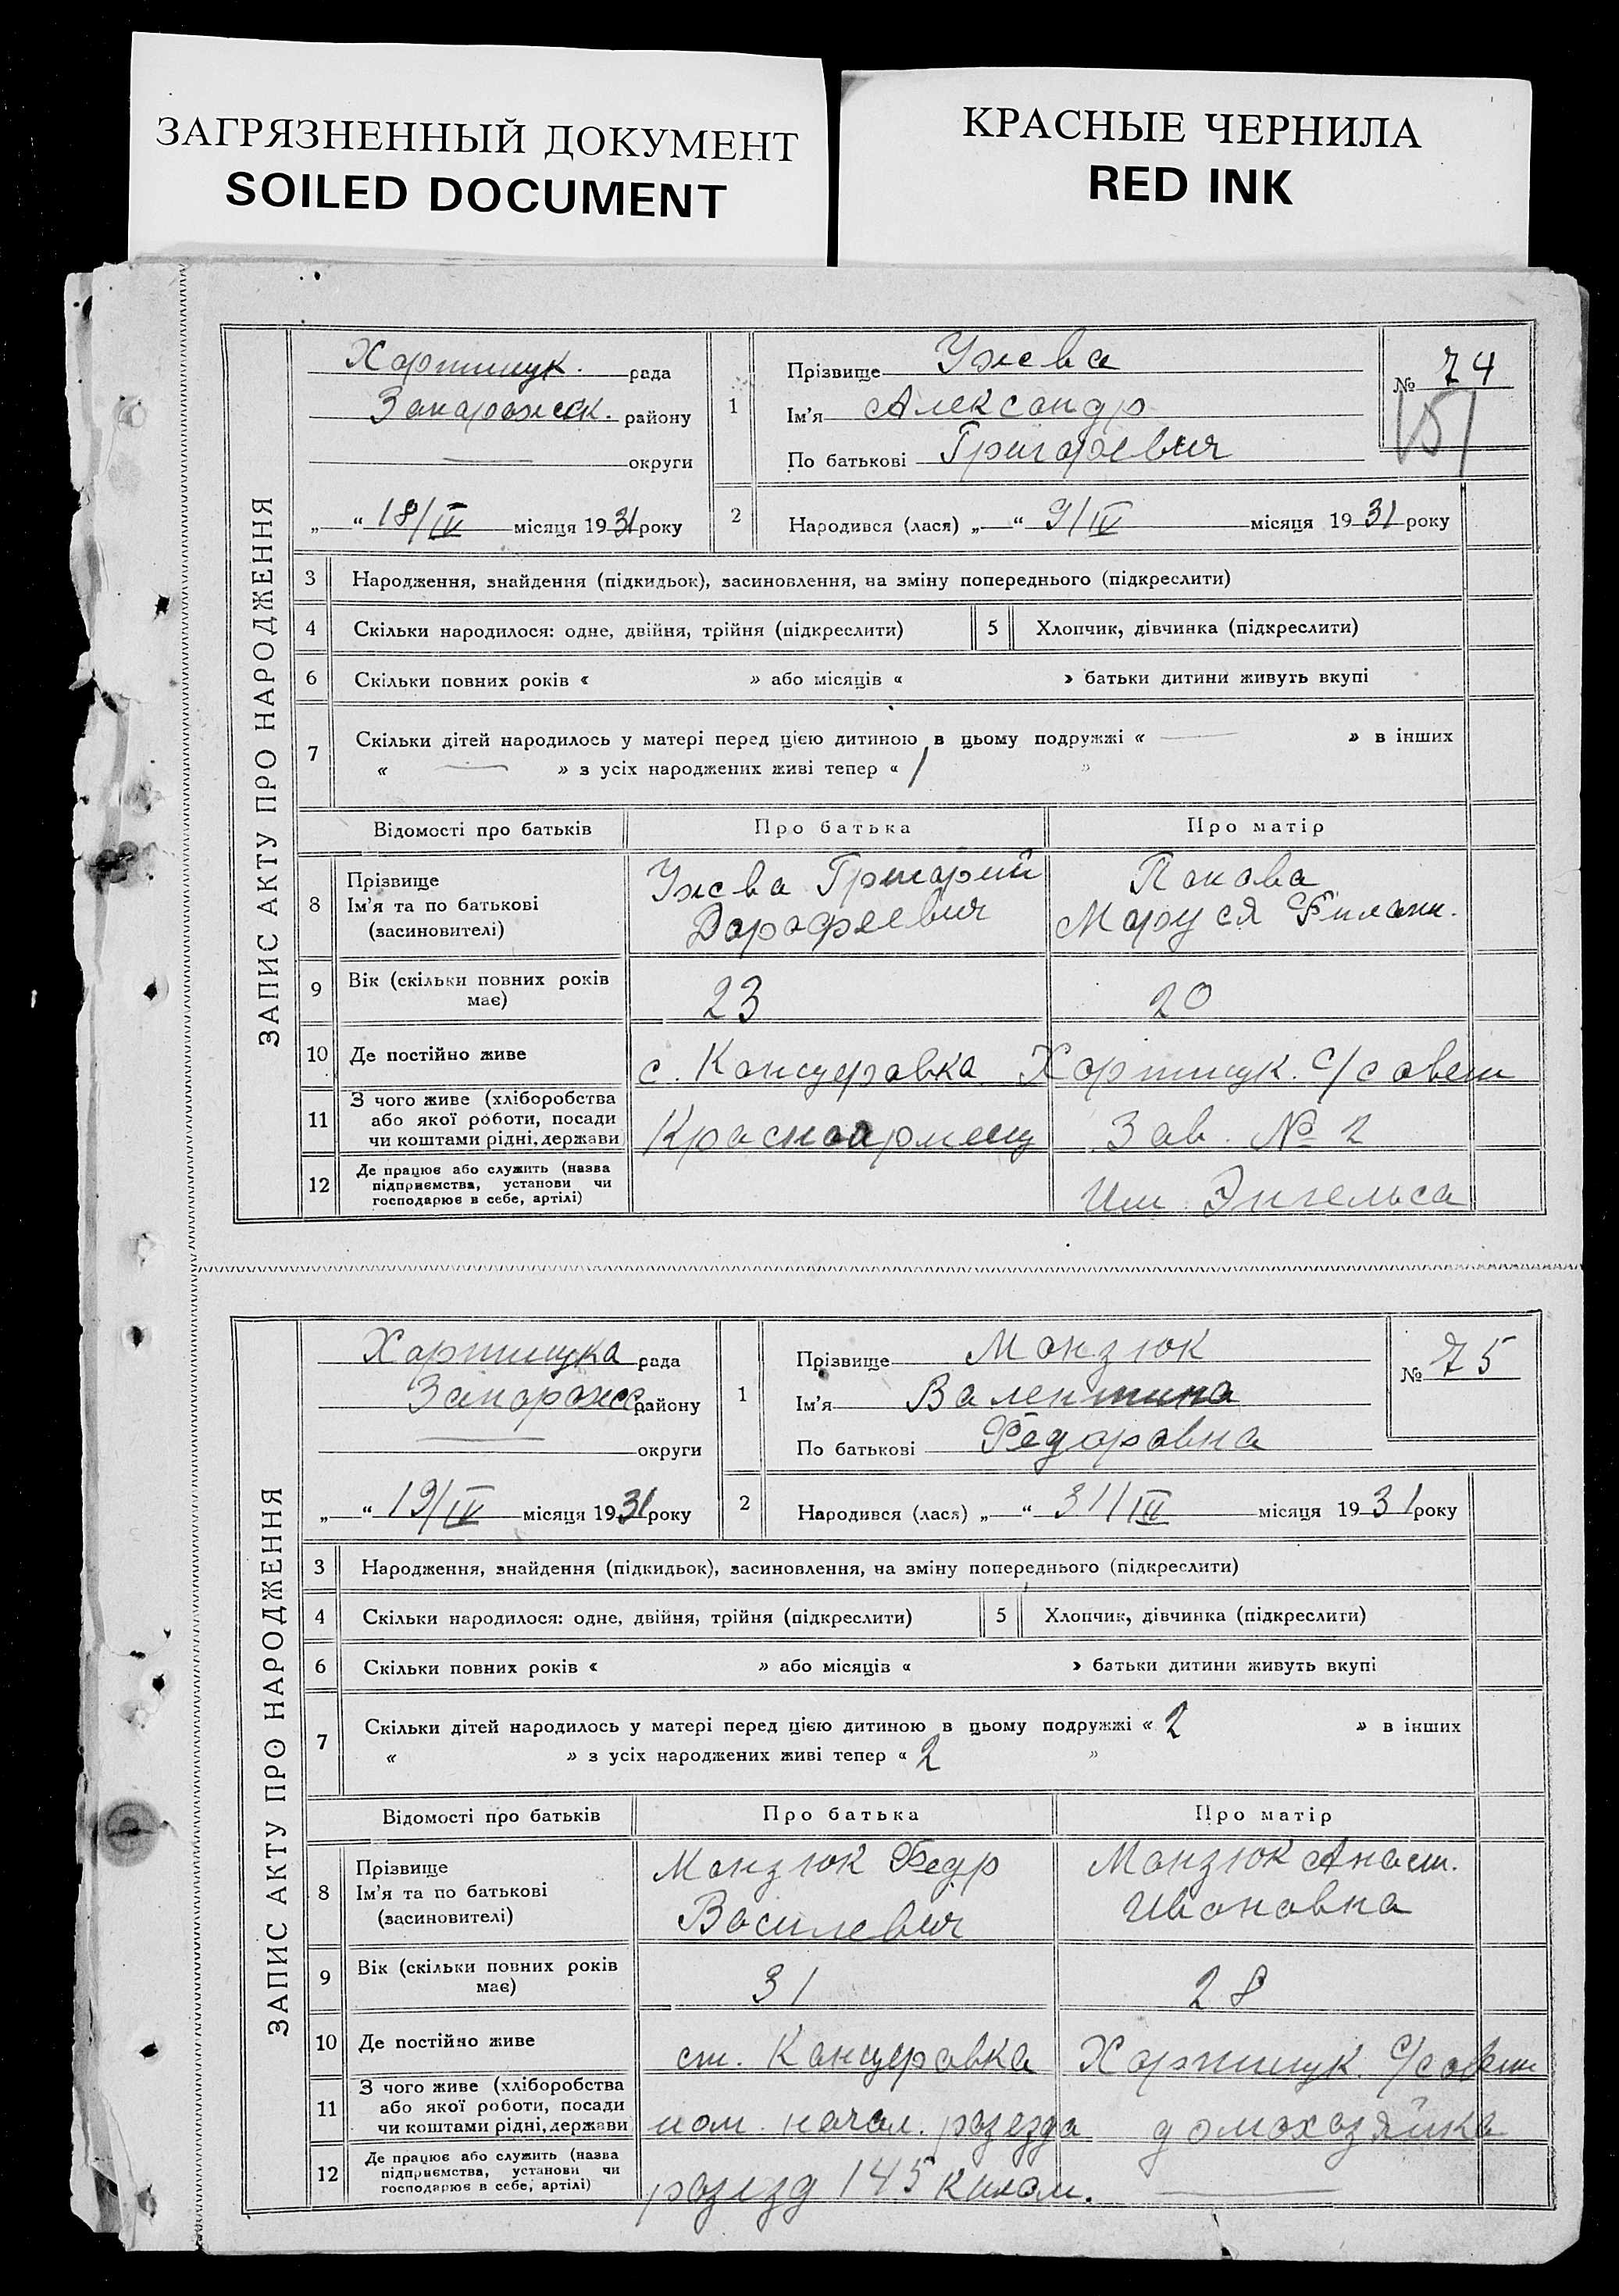 ЗАГРЯЗНЕННЫЙ ДОКУМЕНТ
SOILED DOCUMENT
КРАСНЫЕ ЧЕРНИЛА
RED INK
ЗАПИС АКТУ ПРО НАРОДЖЕННЯ
Хортицук. рада
Запарожск. району
— округи
„ “ 18/IV місяця 1931 року
1
Прізвище Ужева
Ім'я Александр
По батькові Григорьевич
№ 74
151
2 Народився (лася) „ “ 9/IV місяця 1931 року
3 Народження, знайдення (підкидьок), засиновлення, на зміну попереднього (підкреслити)
4 Скільки народилося: одне, двійня, трійня (підкреслити) 5 Хлопчик, дівчинка (підкреслити)
6 Скільки повних років « » або місяців « » батьки дитини живуть вкупі
7 Скільки дітей народилось у матері перед цією дитиною в цьому подружжі « — » в інших
« — » з усіх народжених живі тепер « 1 »
Відомості про батьків Про батька Про матір
8 Прізвище Ім'я та по батькові (засиновителі) Ужева Григорий Дорофеевич Попова Маруся Филип.
9 Вік (скільки повних років має) 23 20
10 Де постійно живе с. Канцеровка Хортицук. с/совет
11 З чого живе (хліборобства або якої роботи, посади чи коштами рідні, держави Красноармеец Зав. № 2
12 Де працює або служить (назва підприємства, установи чи господарює в себе, артілі) Им Энгельса
ЗАПИС АКТУ ПРО НАРОДЖЕННЯ
Хортицука рада
Запарожс. району
— округи
„ “ 19/IV місяця 1931 року
1
Прізвище Манзюк
Ім'я Валентина
По батькові Фёдоровна
№ 75
2 Народився (лася) „ “ 31/III місяця 1931 року
3 Народження, знайдення (підкидьок), засиновлення, на зміну попереднього (підкреслити)
4 Скільки народилося: одне, двійня, трійня (підкреслити) 5 Хлопчик, дівчинка (підкреслити)
6 Скільки повних років « » або місяців « » батьки дитини живуть вкупі
7 Скільки дітей народилось у матері перед цією дитиною в цьому подружжі « 2 » в інших
« » з усіх народжених живі тепер « 2 »
Відомості про батьків Про батька Про матір
8 Прізвище Ім'я та по батькові (засиновителі) Манзюк Федр Василевич Манзюк Анаст. Ивановна
9 Вік (скільки повних років має) 31 28
10 Де постійно живе ст. Канцеровка Хортицук. с/совет
11 З чого живе (хліборобства або якої роботи, посади чи коштами рідні, держави пом. начал. розезда домохозяйка
12 Де працює або служить (назва підприємства, установи чи господарює в себе, артілі) розезд 145 килом. —